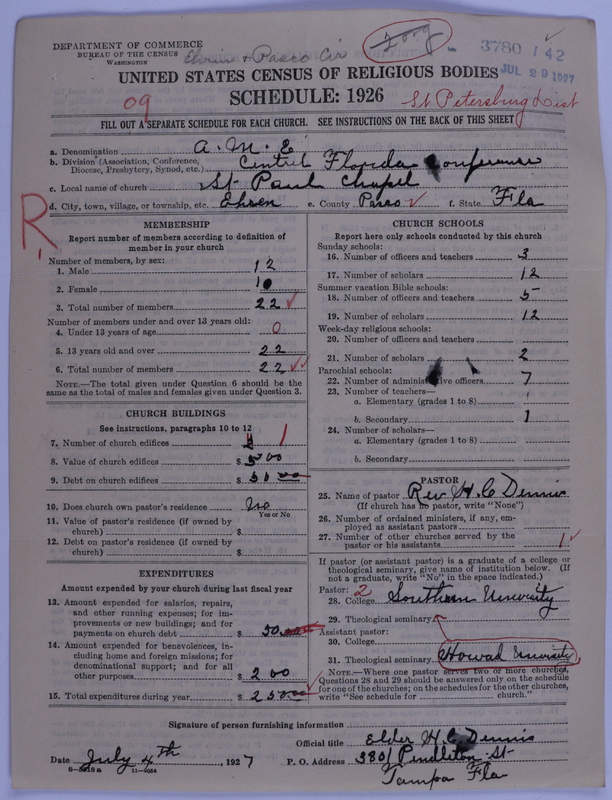 DEPARTMENT OF COMMERCE
BUREAU OF THE CENSUS
WASHINGTON
Elvin & Pasco Cir
3780 142
JUL 29 1927
UNITED STATES CENSUS OF RELIGIOUS BODIES
SCHEDULE: 1926
09
St Petersburg Dist
FILL OUT A SEPARATE SCHEDULE FOR EACH CHURCH. SEE INSTRUCTIONS ON THE BACK OF THIS SHEET
a. Denomination A. M. E
b. Division (Association, Conference, Diocese, Presbytery, Synod, etc.) Central Florida Conference
c. Local name of church St Paul Chapel
d. City, town, village, or township, etc. Ehren e. County Pasco f. State Fla
R
MEMBERSHIP
Report number of members according to definition of member in your church
Number of members, by sex:
1. Male 12
2. Female 10
3. Total number of members 22
Number of members under and over 13 years old:
4. Under 13 years of age 0
5. 13 years old and over 22
6. Total number of members 22
NOTE.—The total given under Question 6 should be the same as the total of males and females given under Question 3.
CHURCH BUILDINGS
See instructions, paragraphs 10 to 12
7. Number of church edifices 1
8. Value of church edifices $ 500
9. Debt on church edifices $ 50 00
10. Does church own pastor's residence No
Yes or No
11. Value of pastor's residence (if owned by church) $
12. Debt on pastor's residence (if owned by church) $
EXPENDITURES
Amount expended by your church during last fiscal year
13. Amount expended for salaries, repairs, and other running expenses; for improvements or new buildings; and for payments on church debt $ 50 00
14. Amount expended for benevolences, including home and foreign missions; for denominational support; and for all other purposes $ 200
15. Total expenditures during year $ 250 00
CHURCH SCHOOLS
Report here only schools conducted by this church
Sunday schools:
16. Number of officers and teachers 3
17. Number of scholars 12
Summer vacation Bible schools:
18. Number of officers and teachers 5
19. Number of scholars 12
Week-day religious schools:
20. Number of officers and teachers
21. Number of scholars 2
Parochial schools:
22. Number of administrative officers 7
23. Number of teachers—
a. Elementary (grades 1 to 8)
b. Secondary 1
24. Number of scholars—
a. Elementary (grades 1 to 8)
b. Secondary
PASTOR
25. Name of pastor Rev. H. C Dennis
(If church has no pastor, write "None")
26. Number of ordained ministers, if any, employed as assistant pastors
27. Number of other churches served by the pastor or his assistants 1
If pastor (or assistant pastor) is a graduate of a college or theological seminary, give name of institution below. (If not a graduate, write "No" in the space indicated.)
Pastor: 2
28. College Southern University
29. Theological seminary
Assistant pastor:
30. College
31. Theological seminary Howard University
NOTE.—Where one pastor serves two or more churches, Questions 28 and 29 should be answered only on the schedule for one of the churches; on the schedules for the other churches, write "See schedule for church."
Signature of person furnishing information
Official title Elder H. C Dennis
Date July 4th, 1927 P. O. Address 3801 Pendleton St
Tampa Fla
8—5218a 11—9084